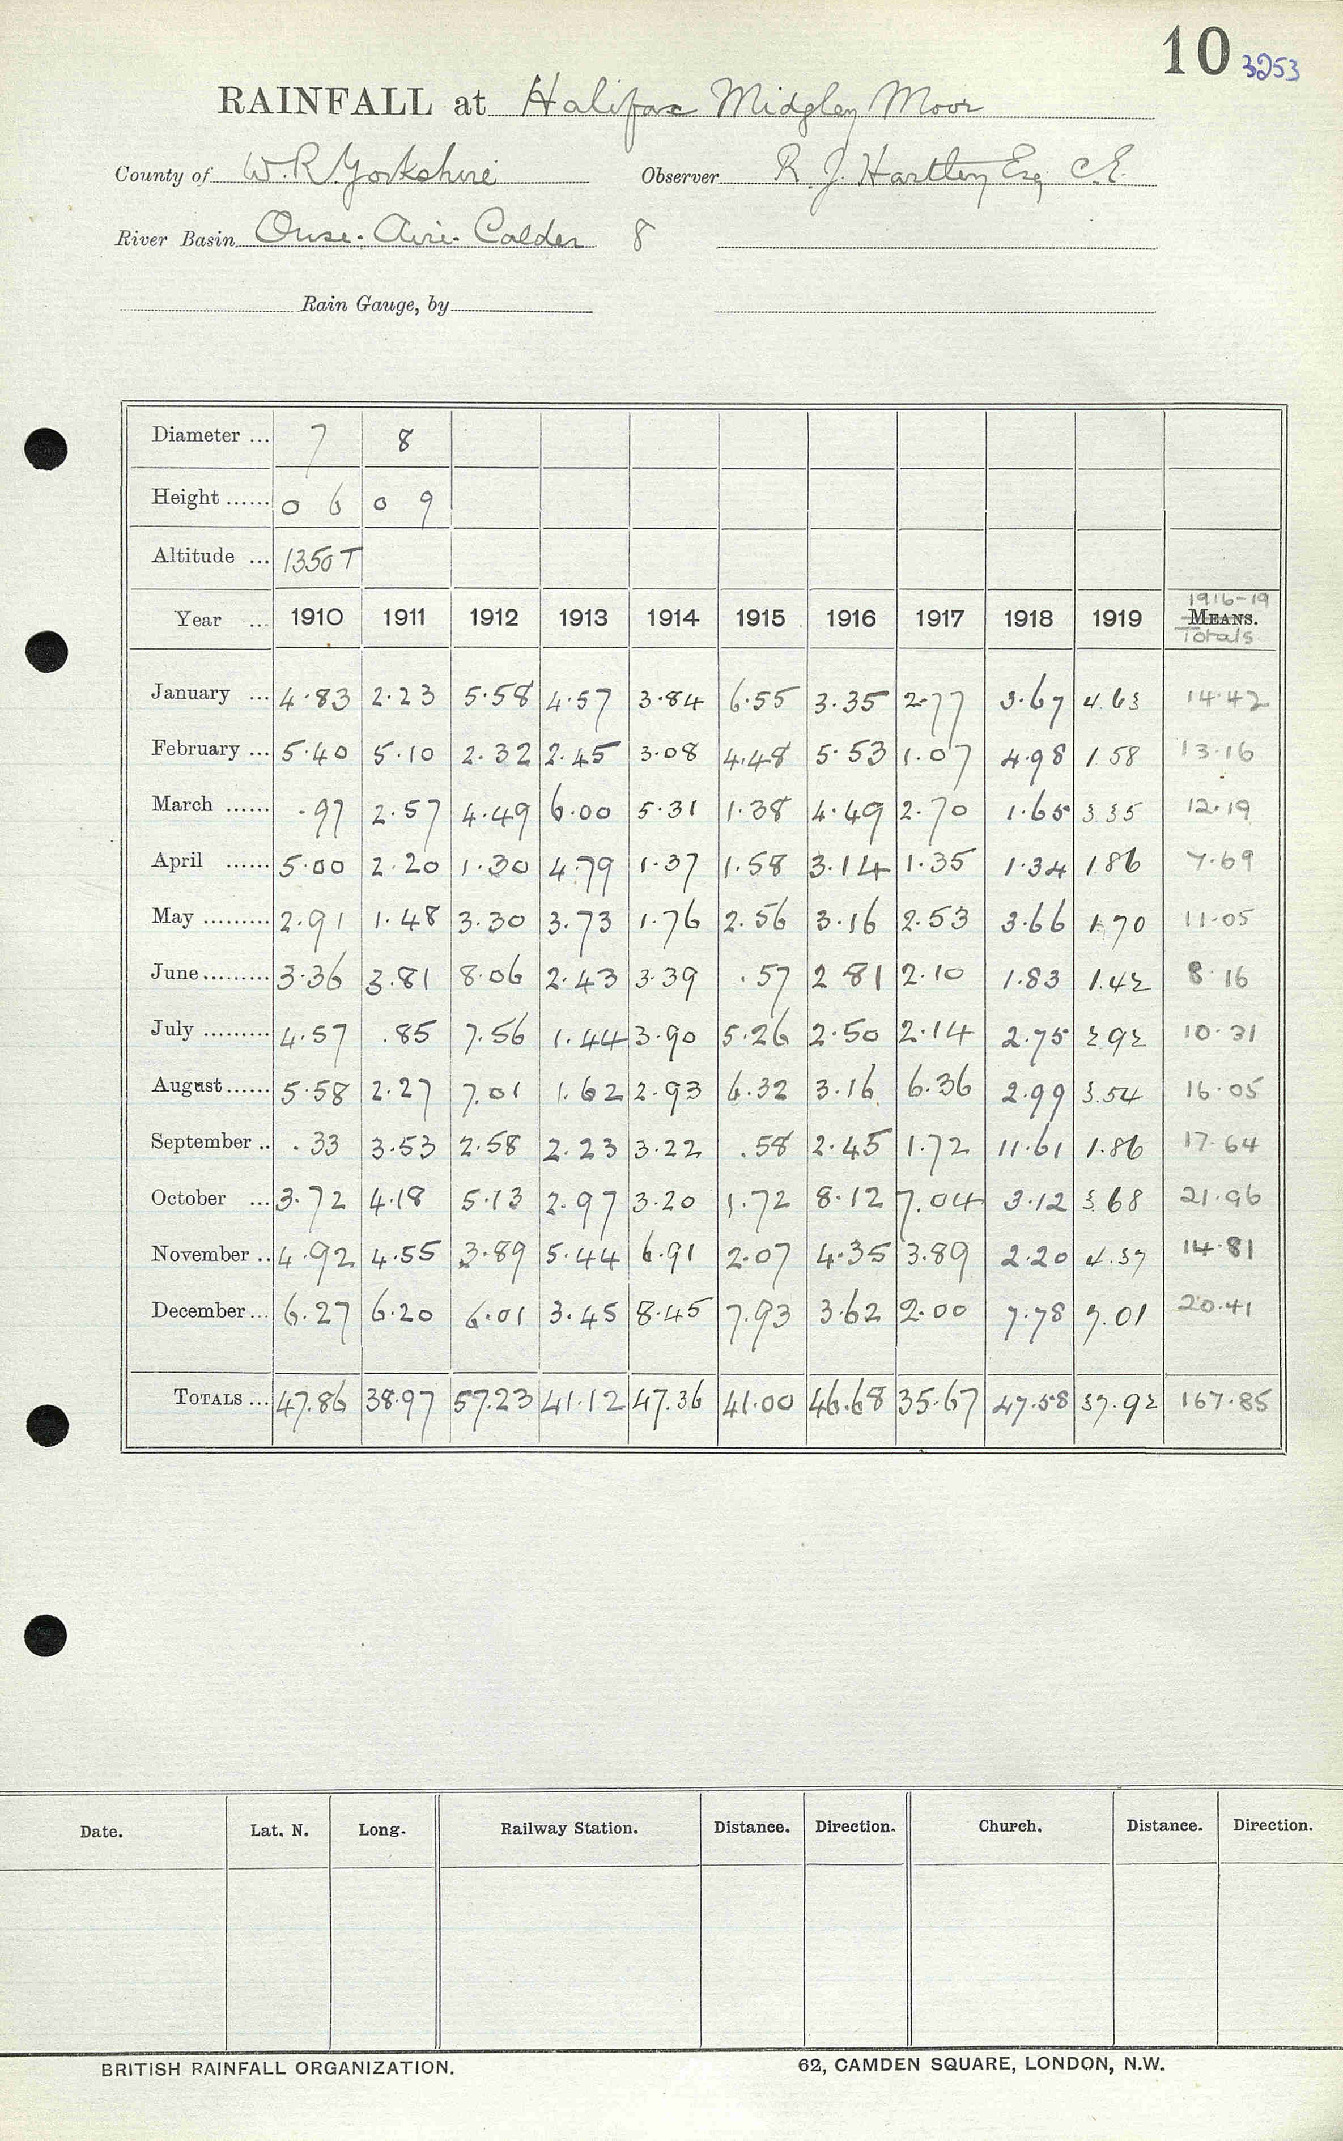 10 3253
RAINFALL at Halifax Midgley Moor
County of W.R. Yorkshire Observer R. J. Hartley Esq C.E.
River Basin Ouse. Aire. Calder 8
Rain Gauge, by
Diameter ... 7 8
Height ...... 0 6 0 9
Altitude ... 1350 T
1916-19
Year ... 1910 1911 1912 1913 1914 1915 1916 1917 1918 1919 MEANS.
Totals
January ... 4.83 2.23 5.58 4.57 3.84 6.55 3.35 2.77 3.67 4.63 14.42
February ... 5.40 5.10 2.32 2.45 3.08 4.48 5.53 1.07 4.98 1.58 13.16
March ...... .97 2.57 4.49 6.00 5.31 1.38 4.49 2.70 1.65 3.35 12.19
April ...... 5.00 2.20 1.30 4.79 1.37 1.58 3.14 1.35 1.34 1.86 7.69
May ......... 2.91 1.48 3.30 3.73 1.76 2.56 3.16 2.53 3.66 1.70 11.05
June ......... 3.36 3.81 8.06 2.43 3.39 .57 2 81 2.10 1.83 1.42 8.16
July ......... 4.57 .85 7.56 1.44 3.90 5.26 2.50 2.14 2.75 2.92 10.31
August ...... 5.58 2.27 7.01 1.62 2.93 6.32 3.16 6.36 2.99 3.54 16.05
September .. .33 3.53 2.58 2.23 3.22 .58 2.45 1.72 11.61 1.86 17.64
October ... 3.72 4.18 5.13 2.97 3.20 1.72 8.12 7.04 3.12 3.68 21.96
November .. 4.92 4.55 3.89 5.44 6.91 2.07 4.35 3.89 2.20 4.37 14.81
December ... 6.27 6.20 6.01 3.45 8.45 7.93 3.62 2.00 7.78 7.01 20.41
TOTALS ... 47.86 38.97 57.23 41.12 47.36 41.00 46.68 35.67 47.58 37.92 167.85
Date. Lat. N. Long. Railway Station. Distance. Direction. Church. Distance. Direction.
BRITISH RAINFALL ORGANIZATION. 62, CAMDEN SQUARE, LONDON, N.W.